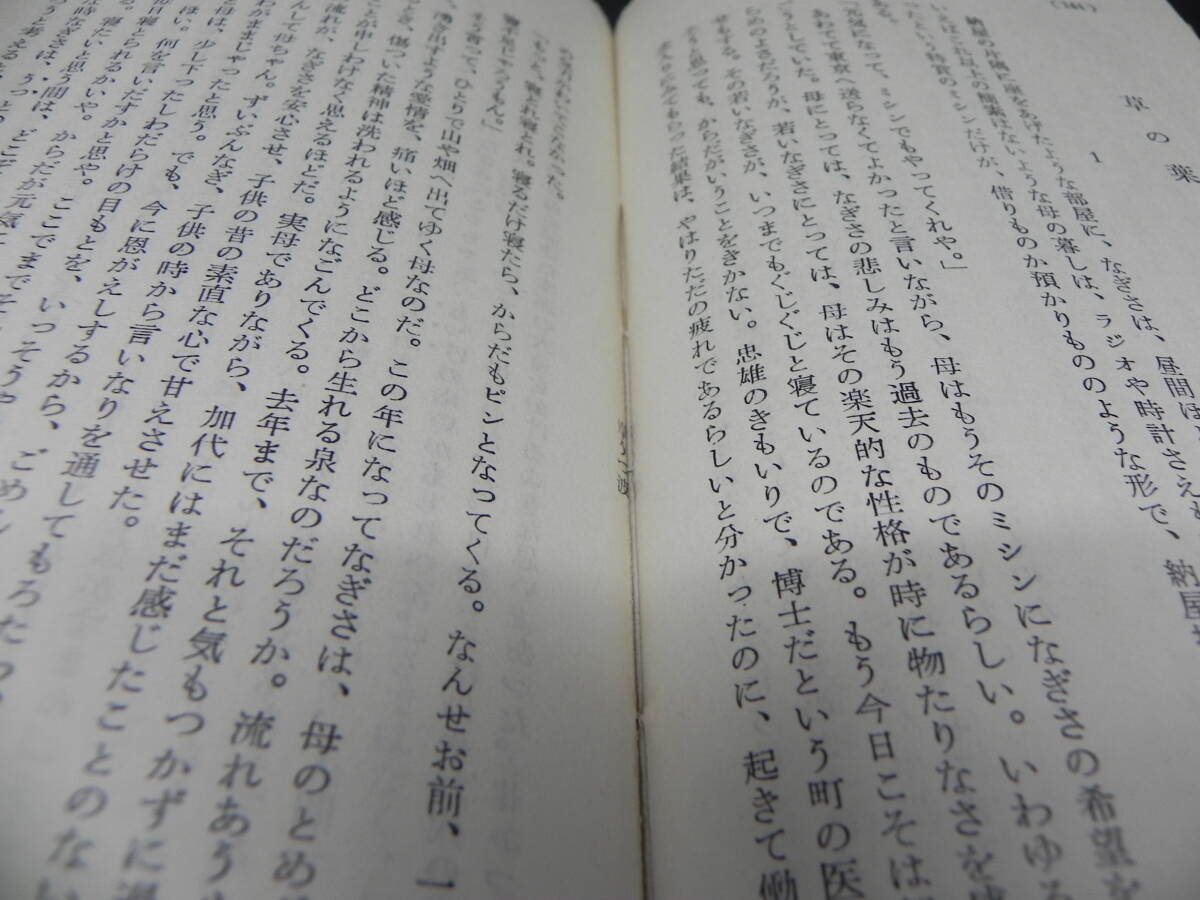 (144)
草の葉
1
納屋の片隅に床をあげたような部屋に、なぎさは、昼間は
いえばこれ以上の簡素はないような母の暮しは、ラジオや時計さえも
ったという特賞のミシンだけが、借りものか預かりもののような形で、納屋
ある。
「元気になって、ミシンでもやってくれや。」
へ送らなくてよかったと言いながら、母はもうそのミシンになぎさの希望を
うとしていた。母にとっては、なぎさの悲しみはもう過去のものであるらしい。いわゆる
あわてて東京
らめのよさだろうが、若いなぎさにとっては、母はその楽天的な性格が時に物たりなさを
せもする。その若いなぎさが、いつまでもぐじぐじと寝ているのである。もう今日こそは
と思っても、からだがいうことをきかない。忠雄のきもいりで、博士だという町の医
てもらった結果は、やはりただの疲れであるらしいと分かったのに、起きて働
なかった。
「もっと、寝たれ寝たれ。寝るだけ寝たら、からだもピンとなってくる。なんせお前、一
寝ずにきたろうもん。」
そう言って、ひとりで山や畑へ出てゆく母なのだ。この年になってなぎさは、母のとめ
湧き出すような愛情を、痛いほど感じる。どこから生れる泉なのだろうか。流れあう
とき、傷ついた精神は洗われるようになごんでくる。去年まで、それと気もつかずに過
ことが申しわけなく思えるほどだ。実母でありながら、加代にはまだ感じたことのない
流れが、なぎさを安心させ、子供の昔の素直な心で甘えさせた。
して母ちゃん。ずいぶんなぎ、子供の時から言いなりを通してもろたっ
わがままじゃったと思う。でも、今に恩がえしするから、ごめん
と母は、少し下ったしわだらけの目もとを、いっそうや
ほ。何を言いだすかと思や。ここでまでそ
毎日寝とられるかいや。からだが元気に
る。寝たいと思う間は、どこで
な時なぎさは、うっと